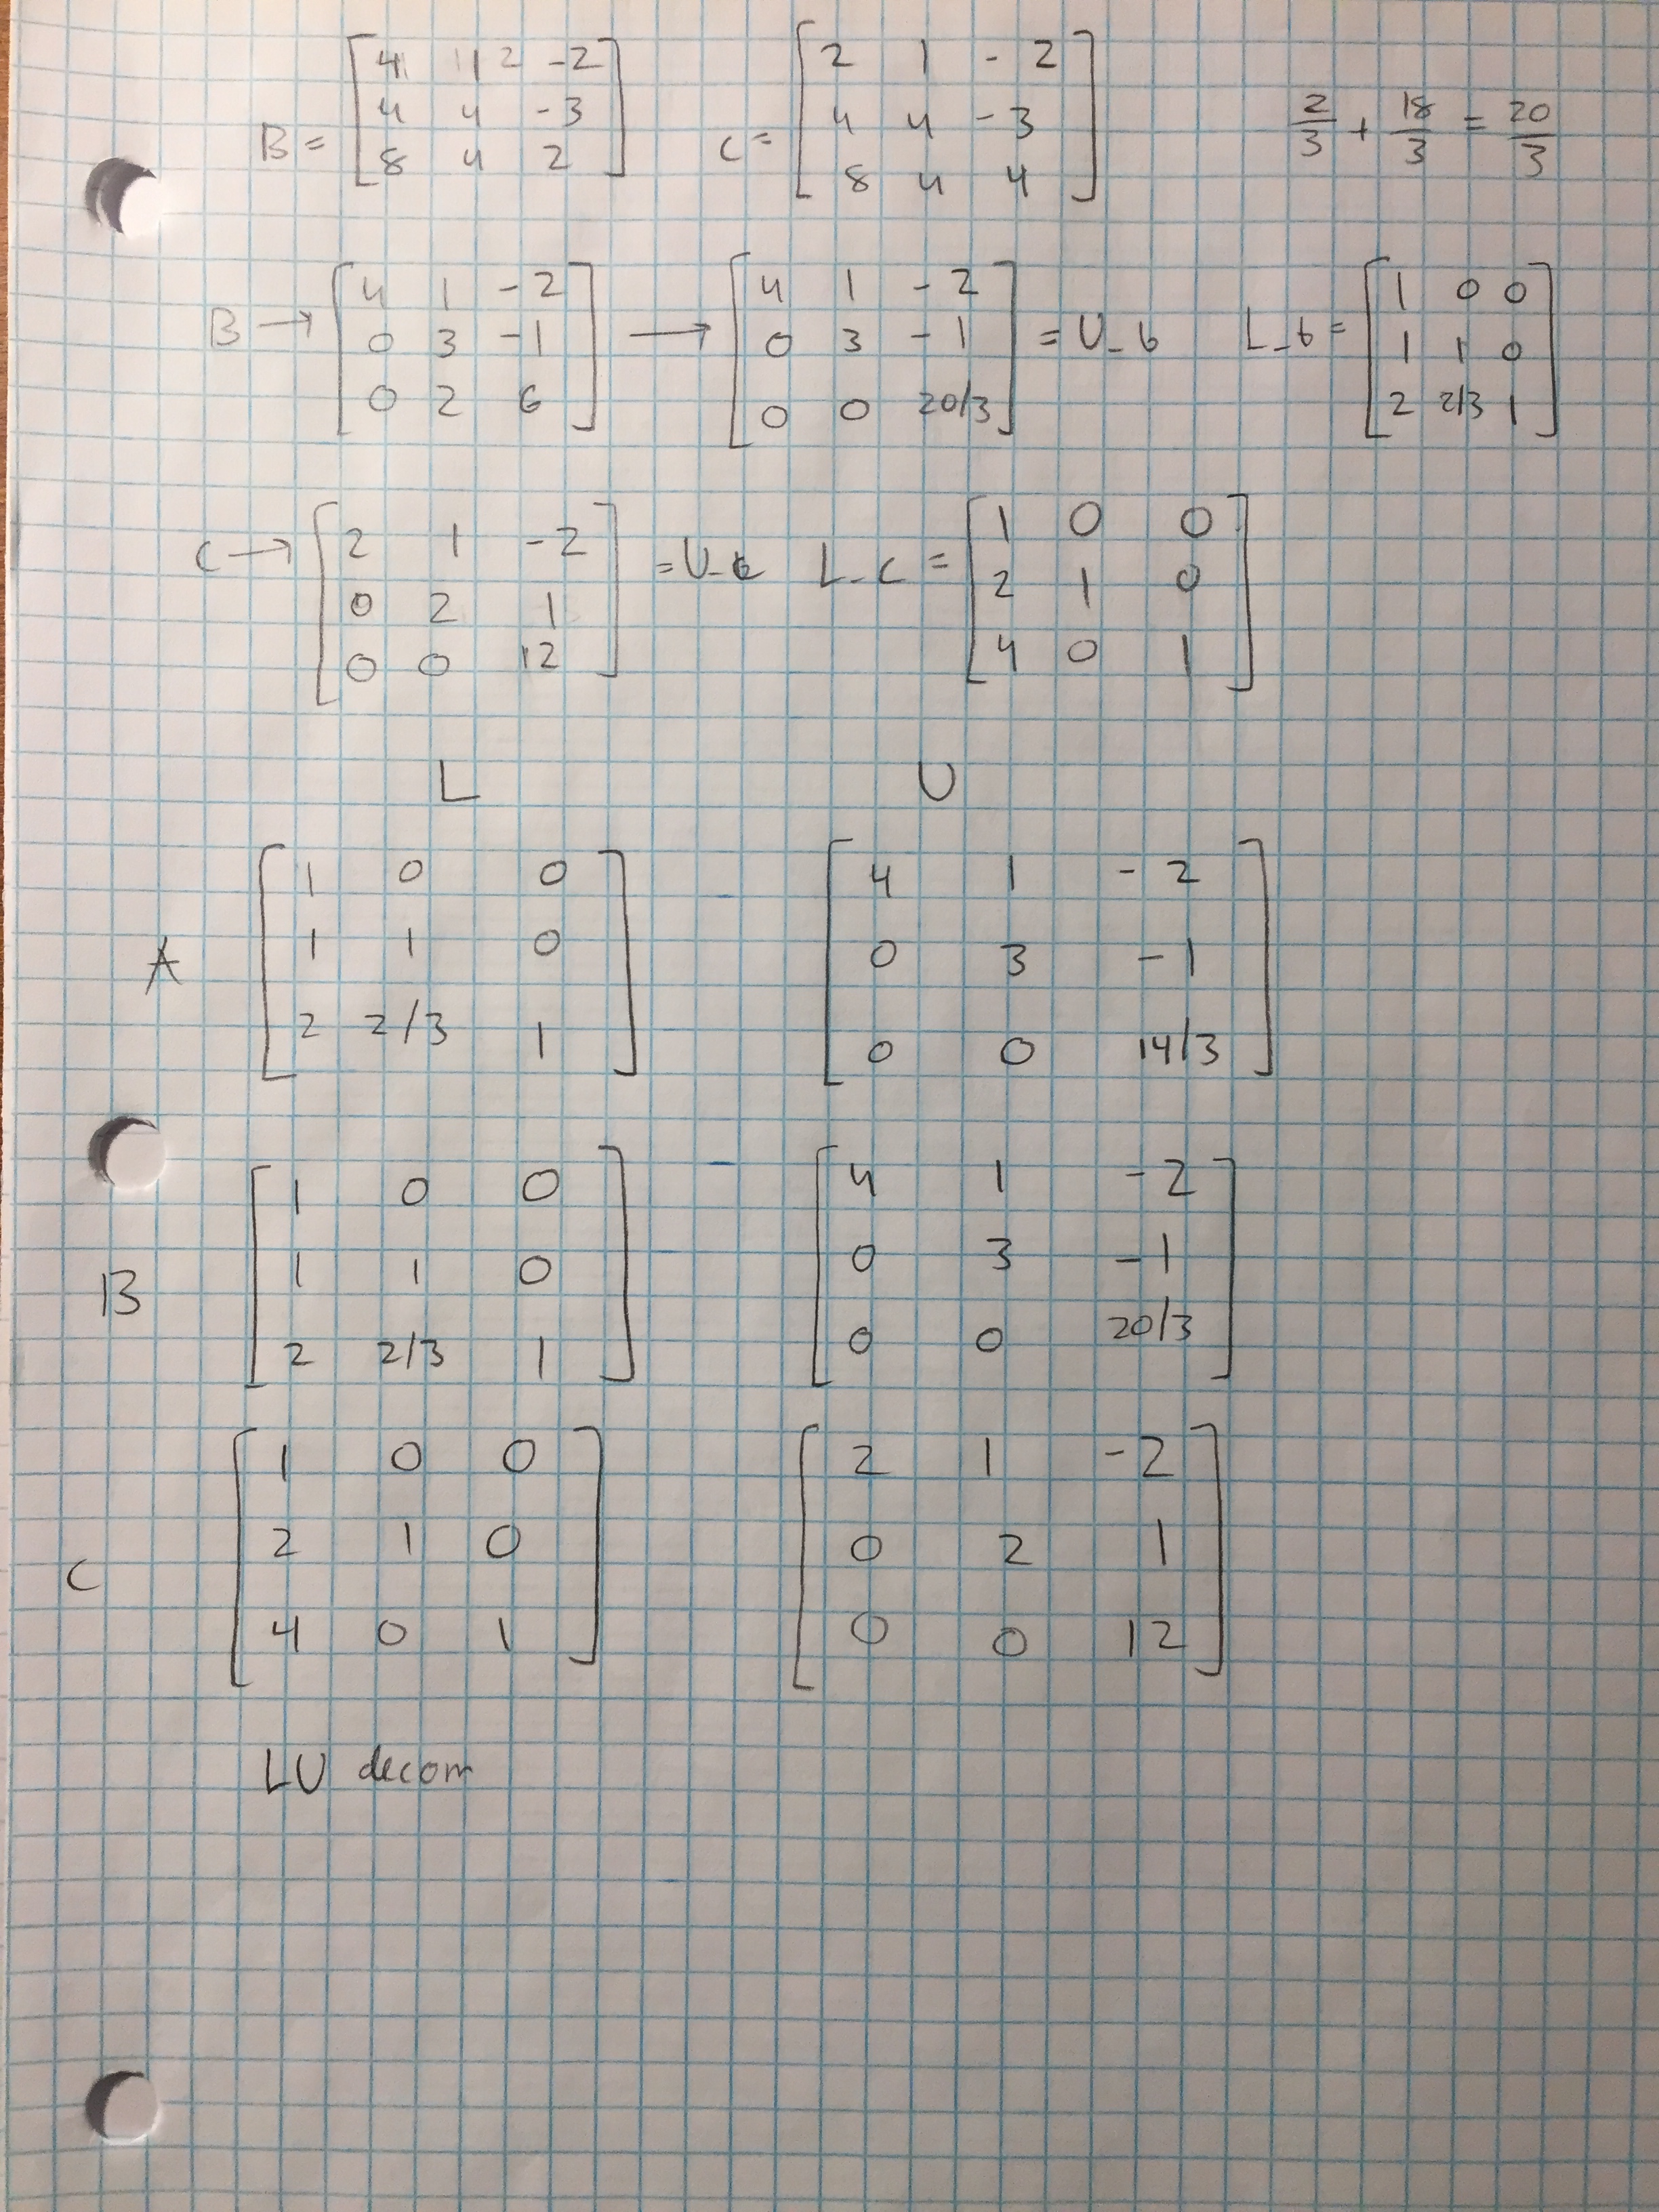 B = [ 4 1 -2
4 4 -3
8 4 2 ]
C = [ 2 1 -2
4 4 -3
8 4 4 ]
2/3 + 18/3 = 20/3
B → [ 4 1 -2
0 3 -1
0 2 6 ]
→ [ 4 1 -2
0 3 -1
0 0 20/3 ] = U_b
L_b = [ 1 0 0
1 1 0
2 2/3 1 ]
C → [ 2 1 -2
0 2 1
0 0 12 ] = U_c
L_c = [ 1 0 0
2 1 0
4 0 1 ]
L U
A
[ 1 0 0
1 1 0
2 2/3 1 ]
[ 4 1 -2
0 3 -1
0 0 14/3 ]
B
[ 1 0 0
1 1 0
2 2/3 1 ]
[ 4 1 -2
0 3 -1
0 0 20/3 ]
C
[ 1 0 0
2 1 0
4 0 1 ]
[ 2 1 -2
0 2 1
0 0 12 ]
LU decom